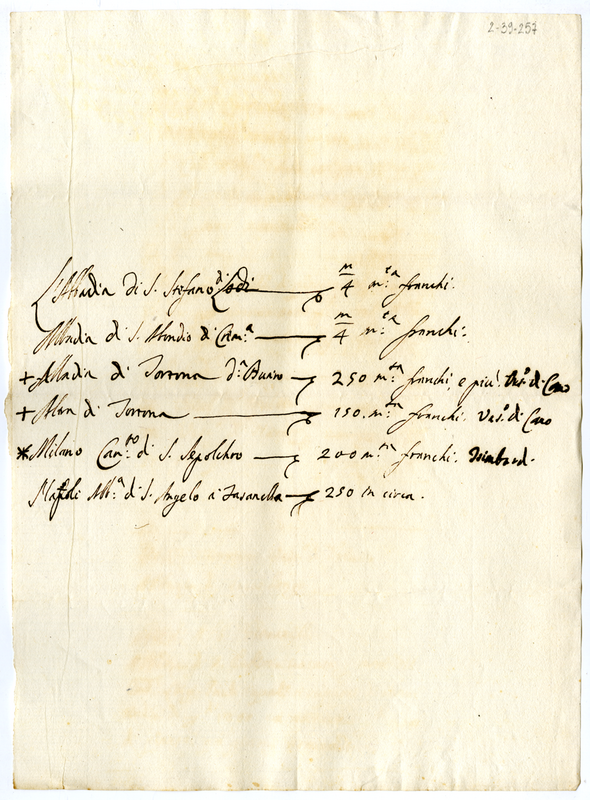 2-39-257
L'Abbadia di S. Stefano di Lodi — m/4 m.ta franchi.
Abbadia di S. Abondio di Crem.a — m/4 m.ta franchi.
+ Abbadia di Tortona d.a — 250 m.ta franchi, e più. Ves.o di
+ Altra di Tortona — 150. m.ta franchi. Ves.o di
* Milano Can.to di S. Sepolchro — 200 m.ta franchi.
Napoli Abb.a di S. Angelo a Fasanella — 250 m circa.